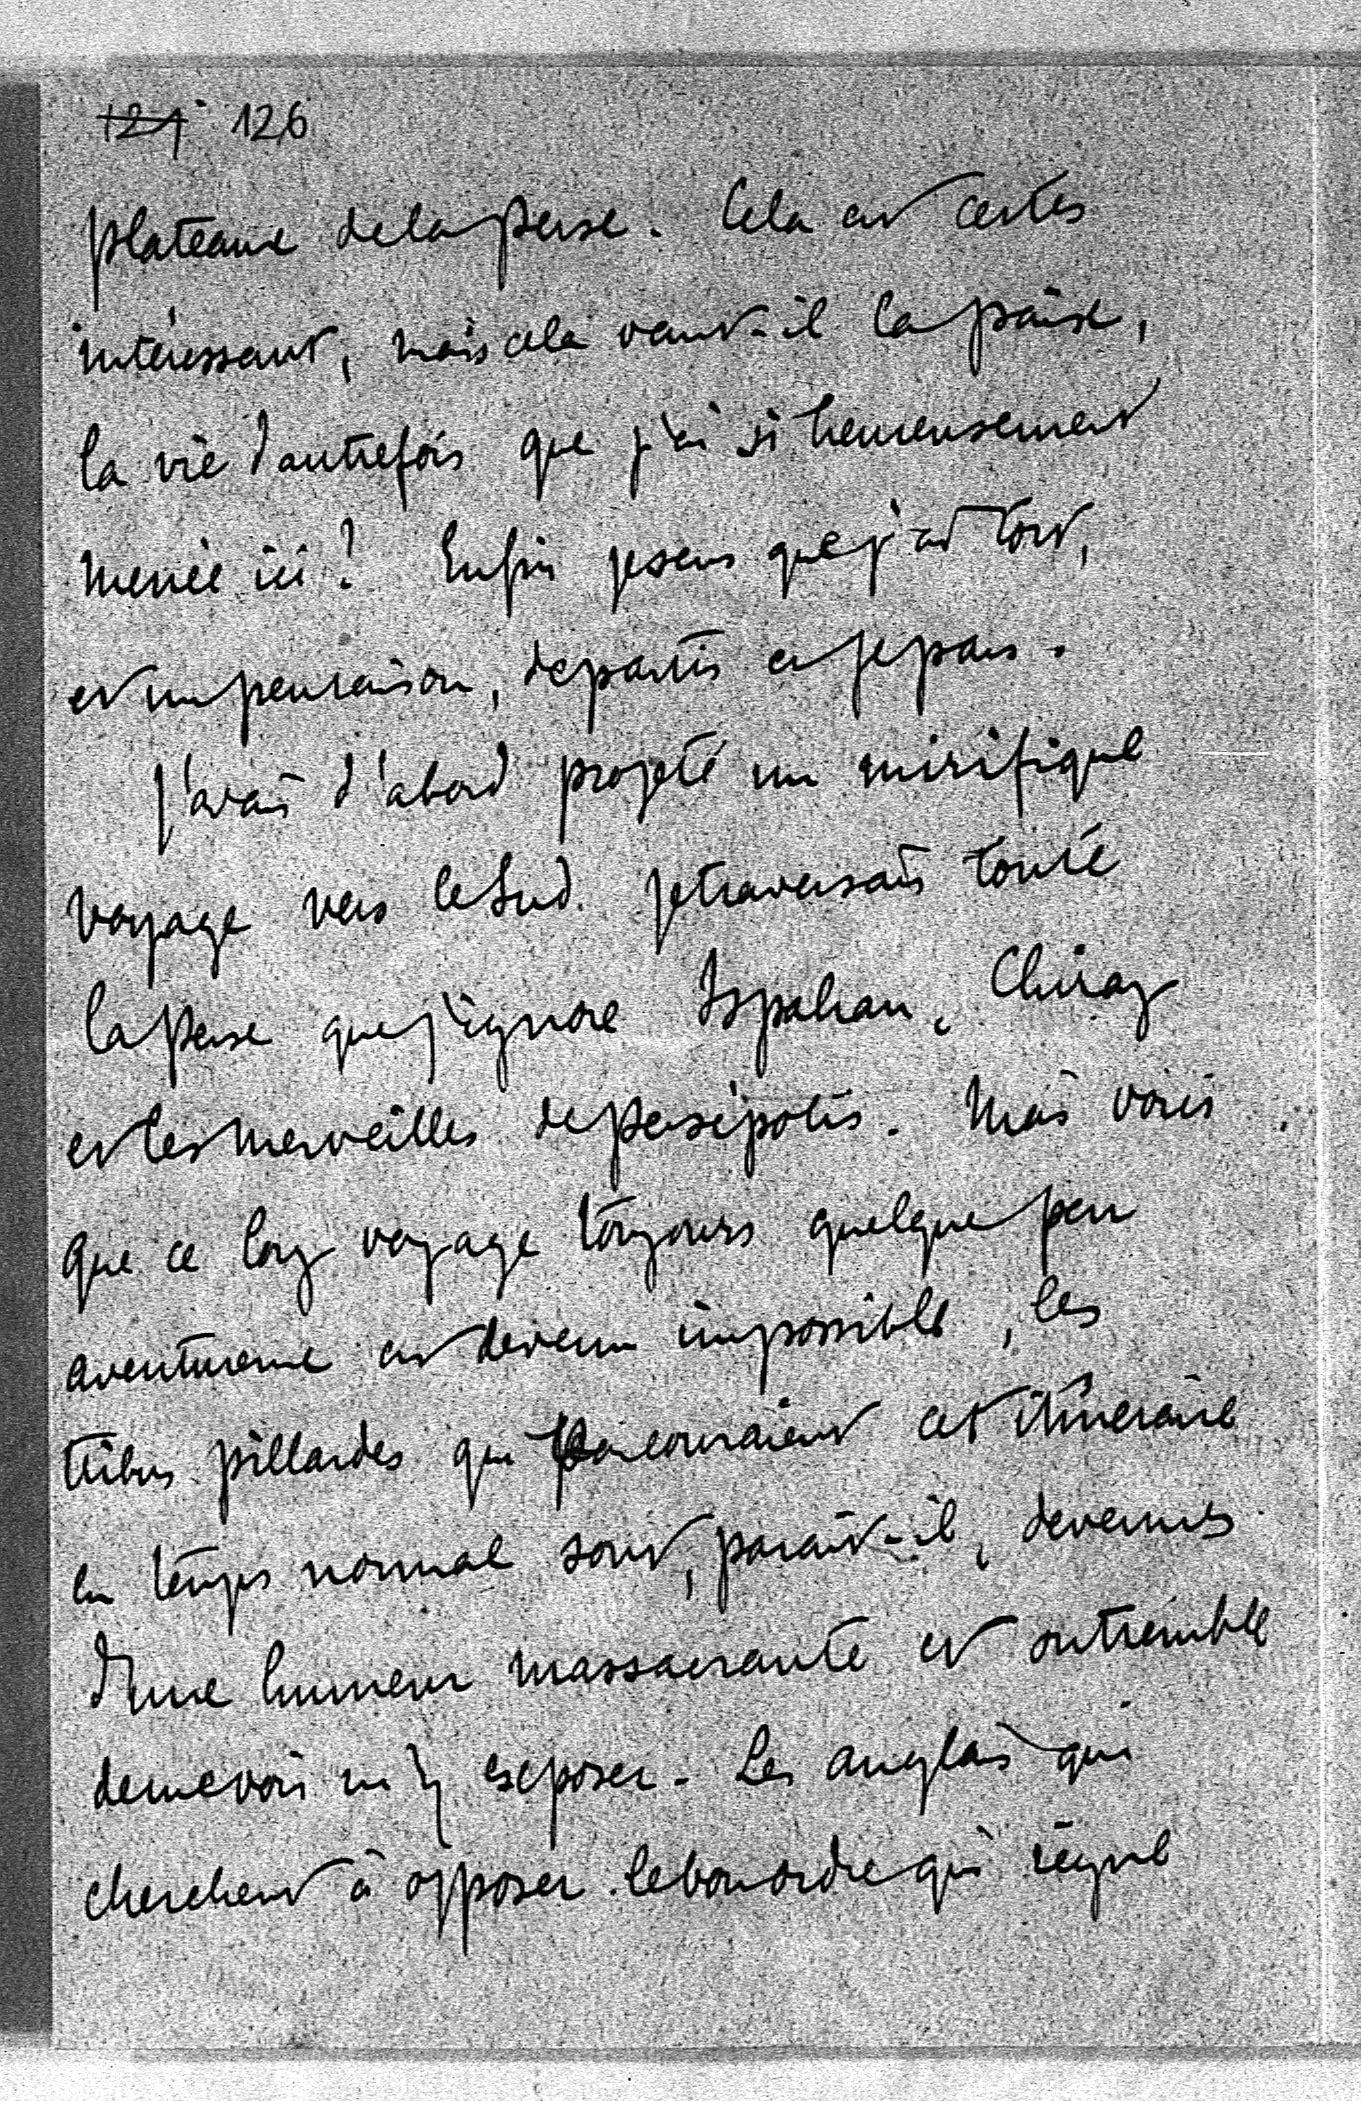 121 126
plateaux de la Perse. Cela est certes
intéressant, mais cela vaut-il la paix,
la vie d'autrefois que j'ai si heureusement
menée ici? Enfin je sens que j'ai tort,
et un peu raison, de partir et je pars.
J'avais d'abord projeté un mirifique
voyage vers le Sud. Je traversais toute
la Perse que j'ignore Ispahan, Chiraz
et les merveilles de Persépolis. Mais voici
que ce long voyage toujours quelque peu
aventureux est devenu impossible, les
tribus pillardes qui parcouraient cet itinéraire
en temps normal sont, paraît-il, devenues
d'une humeur massacrante et on tremble
de me voir m'y exposer. Les anglais qui
cherchent à opposer le bon ordre qui règne